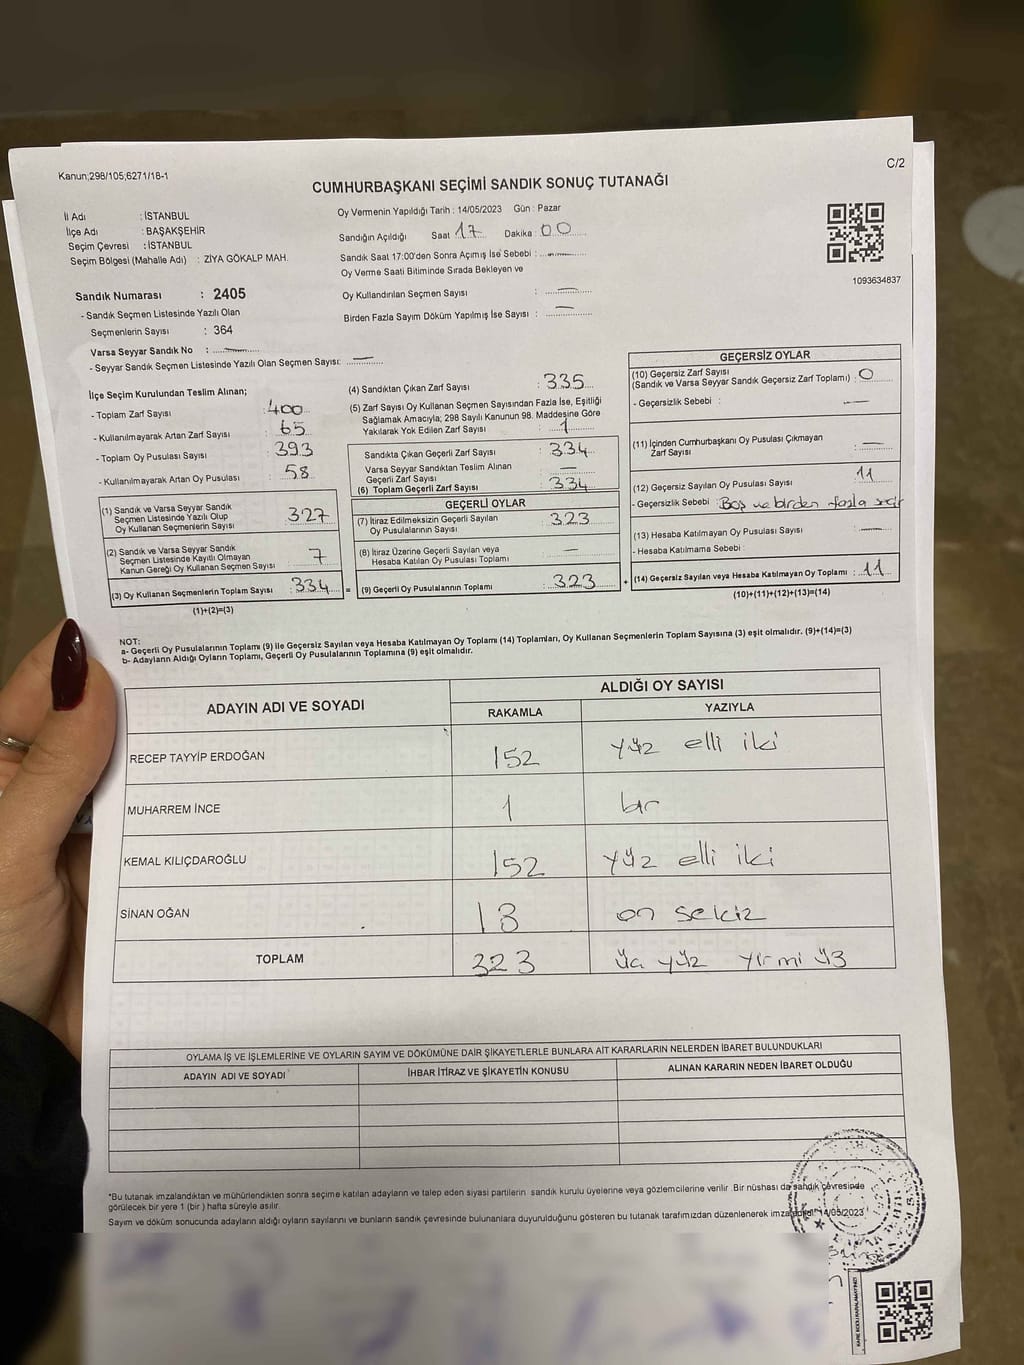 Kanun;298/105;6271/18-1
C/2
CUMHURBAŞKANI SEÇİMİ SANDIK SONUÇ TUTANAĞI
İl Adı : İSTANBUL
İlçe Adı : BAŞAKŞEHİR
Seçim Çevresi : İSTANBUL
Seçim Bölgesi (Mahalle Adı) : ZİYA GÖKALP MAH.
Oy Vermenin Yapıldığı Tarih : 14/05/2023 Gün : Pazar
Sandığın Açıldığı Saat 17 Dakika : 00
Sandık Saat 17:00'den Sonra Açımış İse Sebebi : —
Oy Verme Saati Bitiminde Sırada Bekleyen ve
Oy Kullandırılan Seçmen Sayısı : —
Birden Fazla Sayım Döküm Yapılmış İse Sayısı : —
1093634837
Sandık Numarası : 2405
- Sandık Seçmen Listesinde Yazılı Olan
Seçmenlerin Sayısı : 364
Varsa Seyyar Sandık No : —
- Seyyar Sandık Seçmen Listesinde Yazılı Olan Seçmen Sayısı: —
İlçe Seçim Kurulundan Teslim Alınan;
- Toplam Zarf Sayısı : 400
- Kullanılmayarak Artan Zarf Sayısı : 65
- Toplam Oy Pusulası Sayısı : 393
- Kullanılmayarak Artan Oy Pusulası : 58
(1) Sandık ve Varsa Seyyar Sandık
Seçmen Listesinde Yazılı Olup
Oy Kullanan Seçmenlerin Sayısı : 327
(2) Sandık ve Varsa Seyyar Sandık
Seçmen Listesinde Kayıtlı Olmayan
Kanun Gereği Oy Kullanan Seçmen Sayısı : 7
(3) Oy Kullanan Seçmenlerin Toplam Sayısı : 334
(1)+(2)=(3)
(4) Sandıktan Çıkan Zarf Sayısı : 335
(5) Zarf Sayısı Oy Kullanan Seçmen Sayısından Fazla İse, Eşitliği
Sağlamak Amacıyla; 298 Sayılı Kanunun 98. Maddesine Göre
Yakılarak Yok Edilen Zarf Sayısı : 1
Sandıkta Çıkan Geçerli Zarf Sayısı : 334
Varsa Seyyar Sandıktan Teslim Alınan
Geçerli Zarf Sayısı : —
(6) Toplam Geçerli Zarf Sayısı : 334
GEÇERLİ OYLAR
(7) İtiraz Edilmeksizin Geçerli Sayılan
Oy Pusulalarının Sayısı : 323
(8) İtiraz Üzerine Geçerli Sayılan veya
Hesaba Katılan Oy Pusulası Toplamı : —
= (9) Geçerli Oy Pusulalarının Toplamı : 323 +
GEÇERSİZ OYLAR
(10) Geçersiz Zarf Sayısı
(Sandık ve Varsa Seyyar Sandık Geçersiz Zarf Toplamı) : 0
- Geçersizlik Sebebi : —
(11) İçinden Cumhurbaşkanı Oy Pusulası Çıkmayan
Zarf Sayısı : —
(12) Geçersiz Sayılan Oy Pusulası Sayısı : 11
- Geçersizlik Sebebi : Boş ve birden fazla seçir
(13) Hesaba Katılmayan Oy Pusulası Sayısı : —
- Hesaba Katılmama Sebebi :
(14) Geçersiz Sayılan veya Hesaba Katılmayan Oy Toplamı : 11
(10)+(11)+(12)+(13)=(14)
NOT:
a- Geçerli Oy Pusulalarının Toplamı (9) ile Geçersiz Sayılan veya Hesaba Katılmayan Oy Toplamı (14) Toplamları, Oy Kullanan Seçmenlerin Toplam Sayısına (3) eşit olmalıdır. (9)+(14)=(3)
b- Adayların Aldığı Oyların Toplamı, Geçerli Oy Pusulalarının Toplamına (9) eşit olmalıdır.
ADAYIN ADI VE SOYADI
ALDIĞI OY SAYISI
RAKAMLA YAZIYLA
RECEP TAYYİP ERDOĞAN 152 yüz elli iki
MUHARREM İNCE 1 bir
KEMAL KILIÇDAROĞLU 152 yüz elli iki
SİNAN OĞAN 18 on sekiz
TOPLAM 323 üç yüz yirmi üç
OYLAMA İŞ VE İŞLEMLERİNE VE OYLARIN SAYIM VE DÖKÜMÜNE DAİR ŞİKAYETLERLE BUNLARA AİT KARARLARIN NELERDEN İBARET BULUNDUKLARI
ADAYIN ADI VE SOYADI İHBAR İTİRAZ VE ŞİKAYETİN KONUSU ALINAN KARARIN NEDEN İBARET OLDUĞU
*Bu tutanak imzalandıktan ve mühürlendikten sonra seçime katılan adayların ve talep eden siyasi partilerin sandık kurulu üyelerine veya gözlemcilerine verilir. Bir nüshası da sandık çevresinde
görülecek bir yere 1 (bir ) hafta süreyle asılır.
Sayım ve döküm sonucunda adayların aldığı oyların sayılarını ve bunların sandık çevresinde bulunanlara duyurulduğunu gösteren bu tutanak tarafımızdan düzenlenerek 14/05/2023